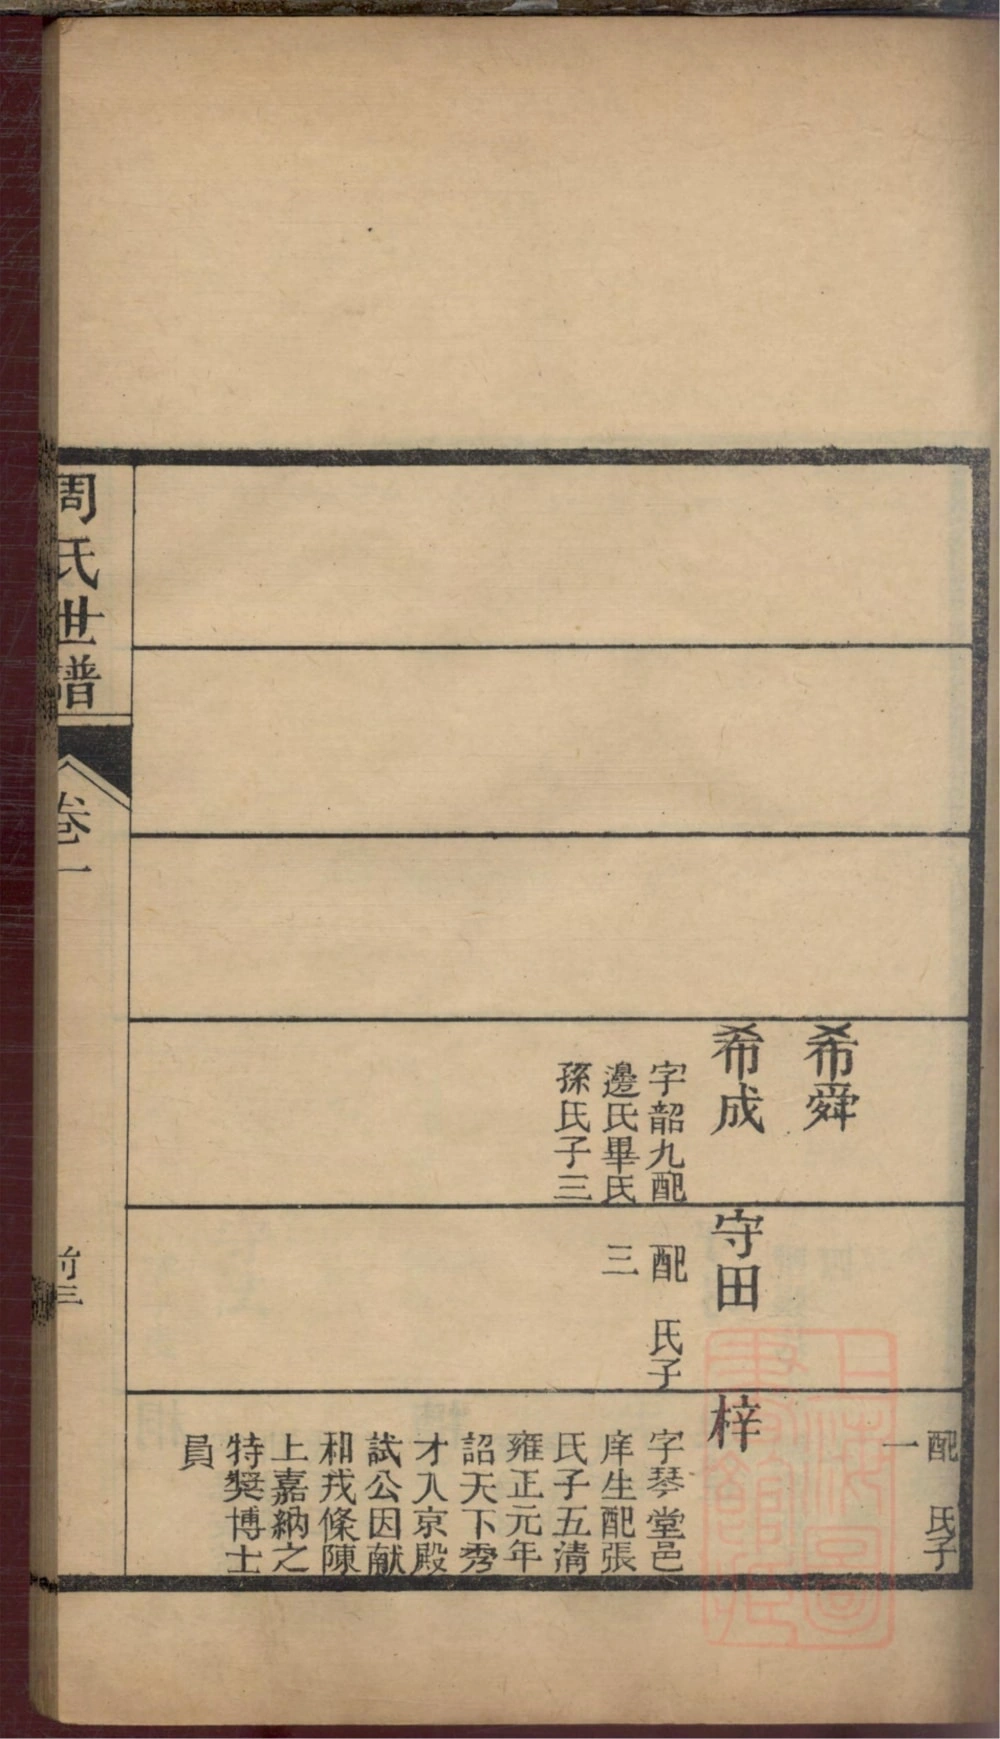 希舜
希成
字韶九配
邊氏畢氏
孫氏子三
守田
配　氏子
三
配　氏子
一
梓
字琴堂邑
庠生配張
氏子五清
雍正元年
詔天下秀
才入京殿
試公因献
和戎條陳
上嘉納之
特獎博士
員
周氏世譜
卷一
前三
上海圖
書館藏